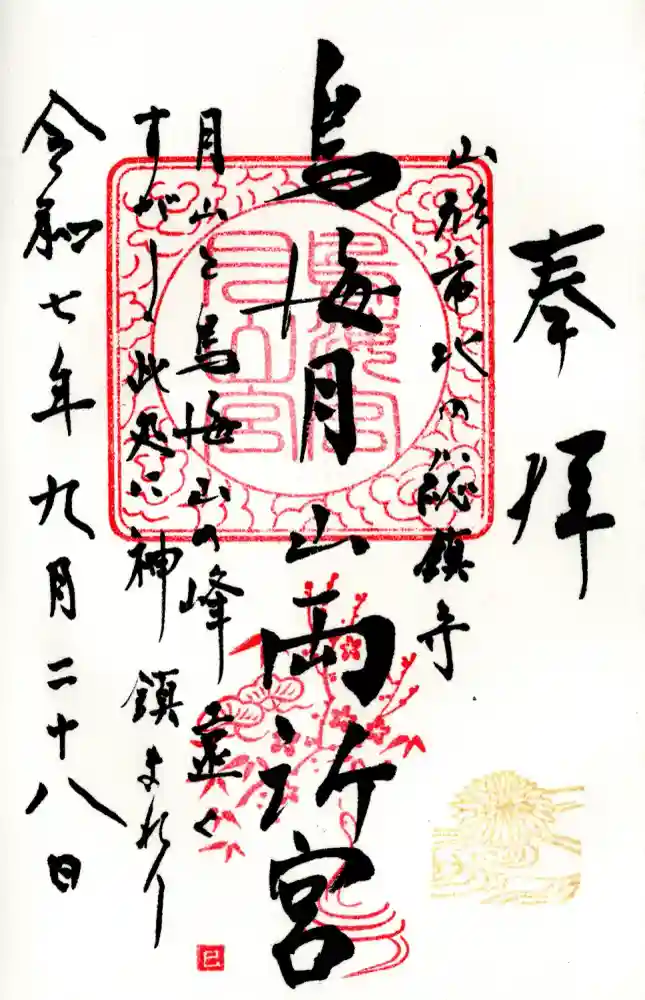 奉拝
山形市北の総鎮守
鳥海月山両所宮
月山と鳥海山の峰遠く
すがし此処に神鎮まれり
令和七年九月二十八日
巳